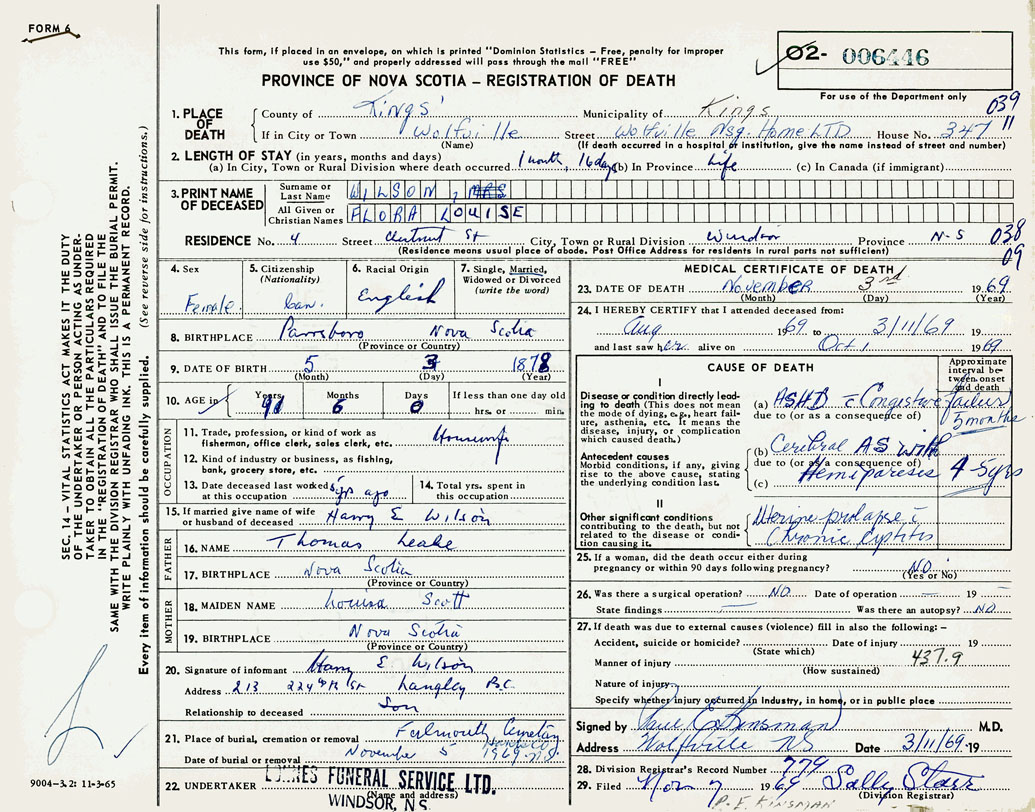 FORM 6
This form, if placed in an envelope, on which is printed "Dominion Statistics – Free, penalty for improper
use $50," and properly addressed will pass through the mail "FREE"
PROVINCE OF NOVA SCOTIA – REGISTRATION OF DEATH
02- 006446
For use of the Department only
039
11
1. PLACE OF DEATH
County of Kings' Municipality of Kings
If in City or Town Wolfville Street Wolfville Nsg. Home LTD House No. 347
(Name) (If death occurred in a hospital or institution, give the name instead of street and number)
2. LENGTH OF STAY (in years, months and days)
(a) In City, Town or Rural Division where death occurred 1 month, 16 days (b) In Province Life (c) In Canada (if immigrant)
3. PRINT NAME OF DECEASED
Surname or Last Name WILSON, MRS
All Given or Christian Names FLORA LOUISE
RESIDENCE No. 4 Street Chestnut St City, Town or Rural Division Windsor Province N-S
(Residence means usual place of abode. Post Office Address for residents in rural parts not sufficient)
038
09
4. Sex Female
5. Citizenship (Nationality) Can.
6. Racial Origin English
7. Single, Married, Widowed or Divorced (write the word)
8. BIRTHPLACE Parrsboro Nova Scotia
(Province or Country)
9. DATE OF BIRTH 5 3 1878
(Month) (Day) (Year)
10. AGE in Years 91 Months 6 Days 0 If less than one day old
hrs. or min.
OCCUPATION
11. Trade, profession, or kind of work as
fisherman, office clerk, sales clerk, etc. Housewife
12. Kind of industry or business, as fishing,
bank, grocery store, etc.
13. Date deceased last worked at this occupation 5 yrs ago
14. Total yrs. spent in this occupation
15. If married give name of wife
or husband of deceased Harry E Wilson
FATHER
16. NAME Thomas Leake
17. BIRTHPLACE Nova Scotia
(Province or Country)
MOTHER
18. MAIDEN NAME Louisa Scott
19. BIRTHPLACE Nova Scotia
(Province or Country)
20. Signature of informant Harry E Wilson
Address 213 224th St Langley B.C.
Relationship to deceased Son
21. Place of burial, cremation or removal Falmouth Cemetery
Date of burial or removal November 5 1969
22. UNDERTAKER FUNERAL SERVICE LTD.
(Name and address)
WINDSOR, N.S.
MEDICAL CERTIFICATE OF DEATH
23. DATE OF DEATH November 3rd 1969
(Month) (Day) (Year)
24. I HEREBY CERTIFY that I attended deceased from:
Aug 1969 to 3/11/69 19
and last saw her alive on Oct 1 1969
CAUSE OF DEATH
Approximate interval between onset and death
I
Disease or condition directly leading to death (This does not mean the mode of dying, e.g., heart failure, asthenia, etc. It means the disease, injury, or complication which caused death.)
(a) ASHD c Congestive failure
due to (or as a consequence of) 5 months
Antecedent causes
Morbid conditions, if any, giving rise to the above cause, stating the underlying condition last.
(b) Cerebral AS with
due to (or as a consequence of)
(c) Hemiparesis 4-5yrs
II
Other significant conditions contributing to the death, but not related to the disease or condition causing it.
Uterine prolapse c
Chronic Cystitis
25. If a woman, did the death occur either during
pregnancy or within 90 days following pregnancy? NO
(Yes or No)
26. Was there a surgical operation? NO Date of operation — 19
State findings — Was there an autopsy? NO
27. If death was due to external causes (violence) fill in also the following: –
Accident, suicide or homicide? Date of injury 19
(State which)
437.9
Manner of injury
(How sustained)
Nature of injury
Specify whether injury occurred in industry, in home, or in public place
Signed by Paul E Kinsman M.D.
Address Wolfville NS Date 3/11/69 19
28. Division Registrar's Record Number 779
29. Filed Nov 7 1969 Sally Starr
(Division Registrar)
P. E. KINSMAN
SEC. 14 – VITAL STATISTICS ACT MAKES IT THE DUTY
OF THE UNDERTAKER OR PERSON ACTING AS UNDER-
TAKER TO OBTAIN ALL THE PARTICULARS REQUIRED
IN THE "REGISTRATION OF DEATH" AND TO FILE THE
SAME WITH THE DIVISION REGISTRAR WHO SHALL ISSUE THE BURIAL PERMIT.
WRITE PLAINLY WITH UNFADING INK. THIS IS A PERMANENT RECORD.
Every item of information should be carefully supplied. (See reverse side for instructions.)
9004-3.2: 11-3-65